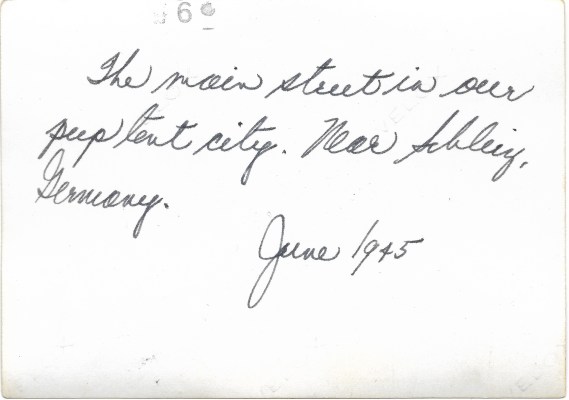 6
The main street in our
pup tent city. Near Schleiz,
Germany.
June 1945